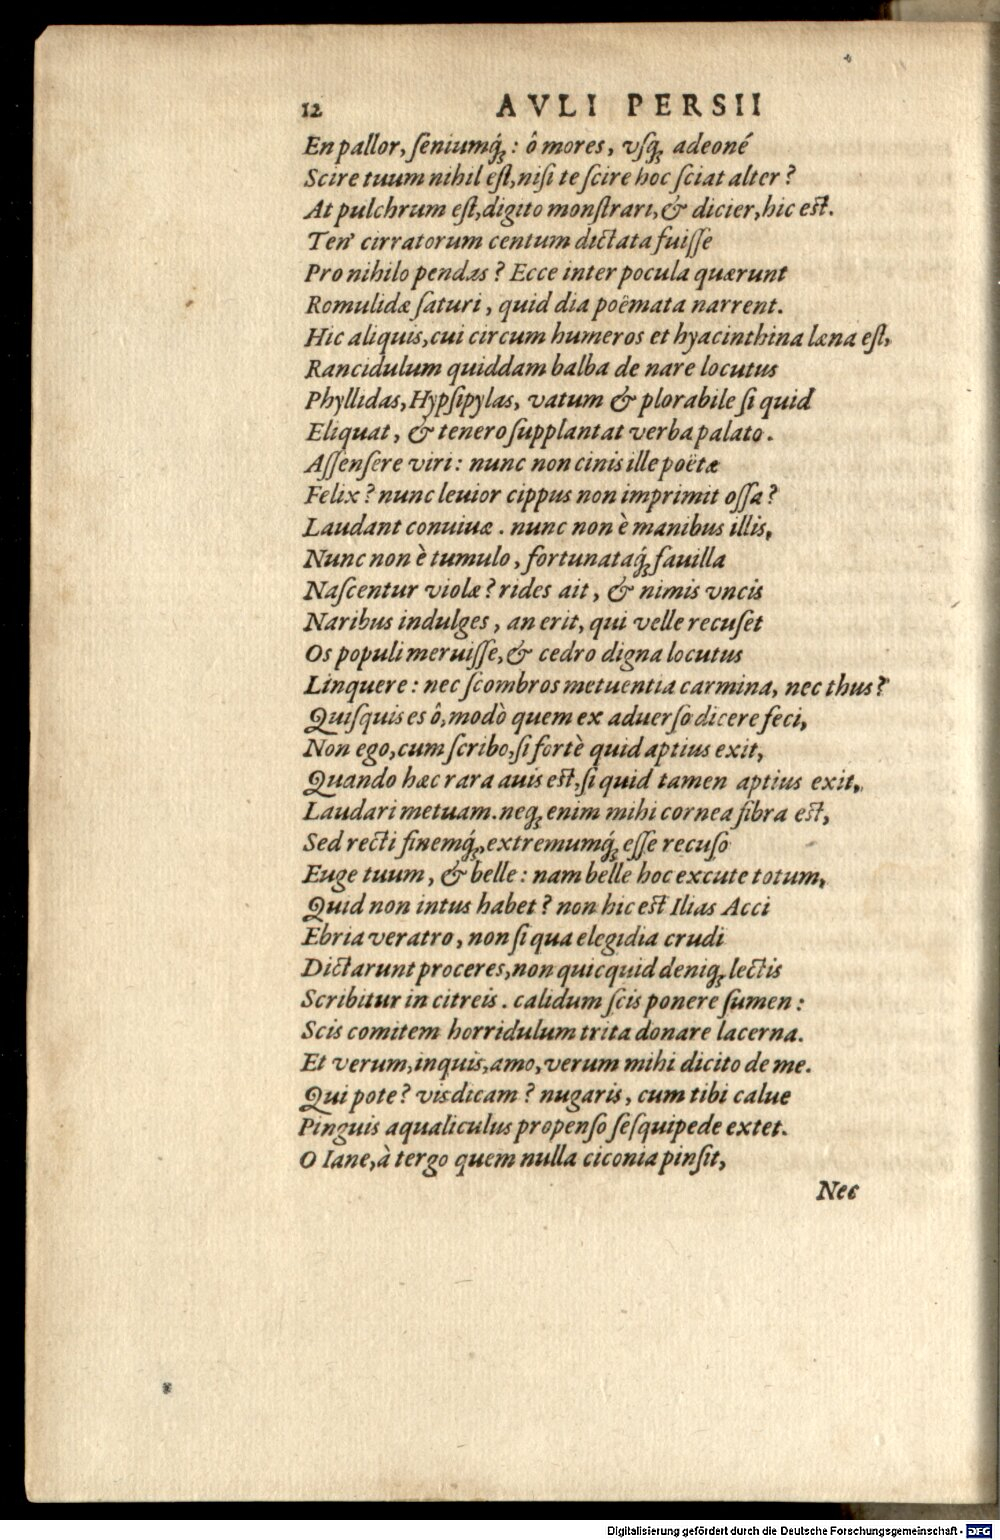 12 AVLI PERSII
En pallor, ſeniumq́ꝫ: ô mores, vſqꝫ adeoné
Scire tuum nihil eſt, niſi te ſcire hoc ſciat alter?
At pulchrum eſt, digito monſtrari, & dicier, hic eſt.
Ten' cirratorum centum dictata fuiſſe
Pro nihilo pendas? Ecce inter pocula quærunt
Romulidæ ſaturi, quid dia poëmata narrent.
Hic aliquis, cui circum humeros et hyacinthina læna eſt,
Rancidulum quiddam balba de nare locutus
Phyllidas, Hypſipylas, vatum & plorabile ſi quid
Eliquat, & tenero ſupplantat verba palato.
Aſſenſere viri: nunc non cinis ille poëtæ
Felix? nunc leuior cippus non imprimit oſſa?
Laudant conuiuæ. nunc non è manibus illis,
Nunc non è tumulo, fortunataq́ꝫ fauilla
Naſcentur violæ? rides ait, & nimis vncis
Naribus indulges, an erit, qui velle recuſet
Os populi meruiſſe, & cedro digna locutus
Linquere: nec ſcombros metuentia carmina, nec thus?
Quiſquis es ô, modò quem ex aduerſo dicere feci,
Non ego, cum ſcribo, ſi fortè quid aptius exit,
Quando hæc rara auis eſt, ſi quid tamen aptius exit,
Laudari metuam. neqꝫ enim mihi cornea fibra eſt,
Sed recti finemq́ꝫ, extremumq́ꝫ eſſe recuſo
Euge tuum, & belle: nam belle hoc excute totum,
Quid non intus habet? non hic eſt Ilias Acci
Ebria veratro, non ſi qua elegidia crudi
Dictarunt proceres, non quicquid deniqꝫ lectis
Scribitur in citreis. calidum ſcis ponere ſumen:
Scis comitem horridulum trita donare lacerna.
Et verum, inquis, amo, verum mihi dicito de me.
Qui pote? vis dicam? nugaris, cum tibi calue
Pinguis aqualiculus propenſo ſeſquipede extet.
O Iane, à tergo quem nulla ciconia pinſit,
Nec
Digitalisierung gefördert durch die Deutsche Forschungsgemeinschaft - DFG